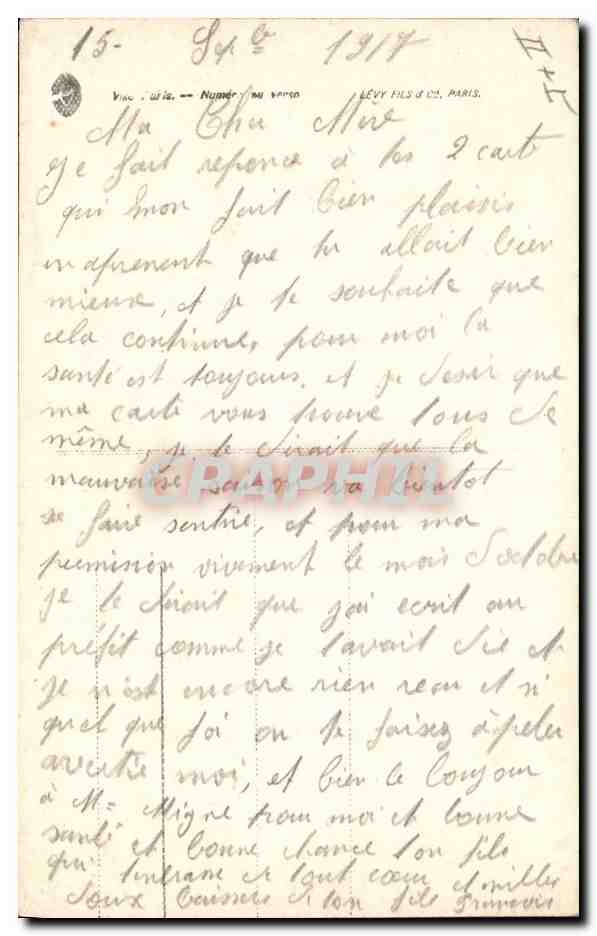 15- Sepbre 1917
II + I
Visé Paris. -- Numéro au verso
LÉVY FILS & Co, PARIS.
Ma Cher Mère
Je fait reponce à tes 2 carte
qui mon fait bien plaisir
en aprenant que tu allait bien
mieux, et je te souhaite que
cela continue, pour moi la
santé est toujours. et je desir que
ma carte vous trouve tous de
même, je te dirait que la
mauvaise saison va bientot
se faire sentire, et pour ma
permision vivement le mois doctobre
je te dirait que jai ecrit au
préfet comme je tavait die et
je n'est encore rien recu et si
quel que foi on te faisez apeler
avertie moi, et bien le bonjour
à Mme Migne pour moi et bonne
santé et bonne chance ton fils
qui tenbrasse de tout coeur et milles
doux baisers de ton fils Francois
CPAPHIL